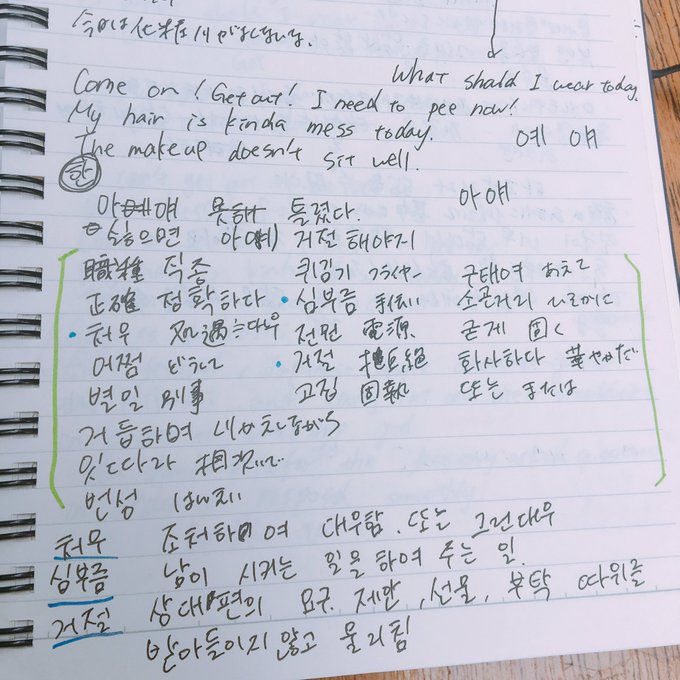 What should I wear today.
Come on! Get out! I need to pee now!
My hair is kinda mess today.
예 얘
The makeup doesn't sit well.
한
틀렸다. 아얘
싫으면 거절해야지
職種 직종 튀김기 フライヤー 구태여 あえて
正確 정확하다 심부름 手伝い 소곤거리 ひそかに
처우 処遇≒대우 전원 電源 굳게 固く
어쩜 どうして 거절 拒絶 화사하다 華やかだ
별일 別事 고집 固執 또는 または
거듭하여
잇따라 相次いで
번성 はんせい
처우 조처하여 대우함. 또는 그런 대우
심부름 남이 시키는 일을 하여 주는 일.
거절 상대편의 요구, 제안, 선물, 부탁 따위를
받아들이지 않고 물리침